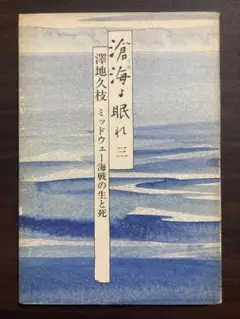 滄海よ眠れ 三
澤地久枝
ミッドウェー海戦の生と死